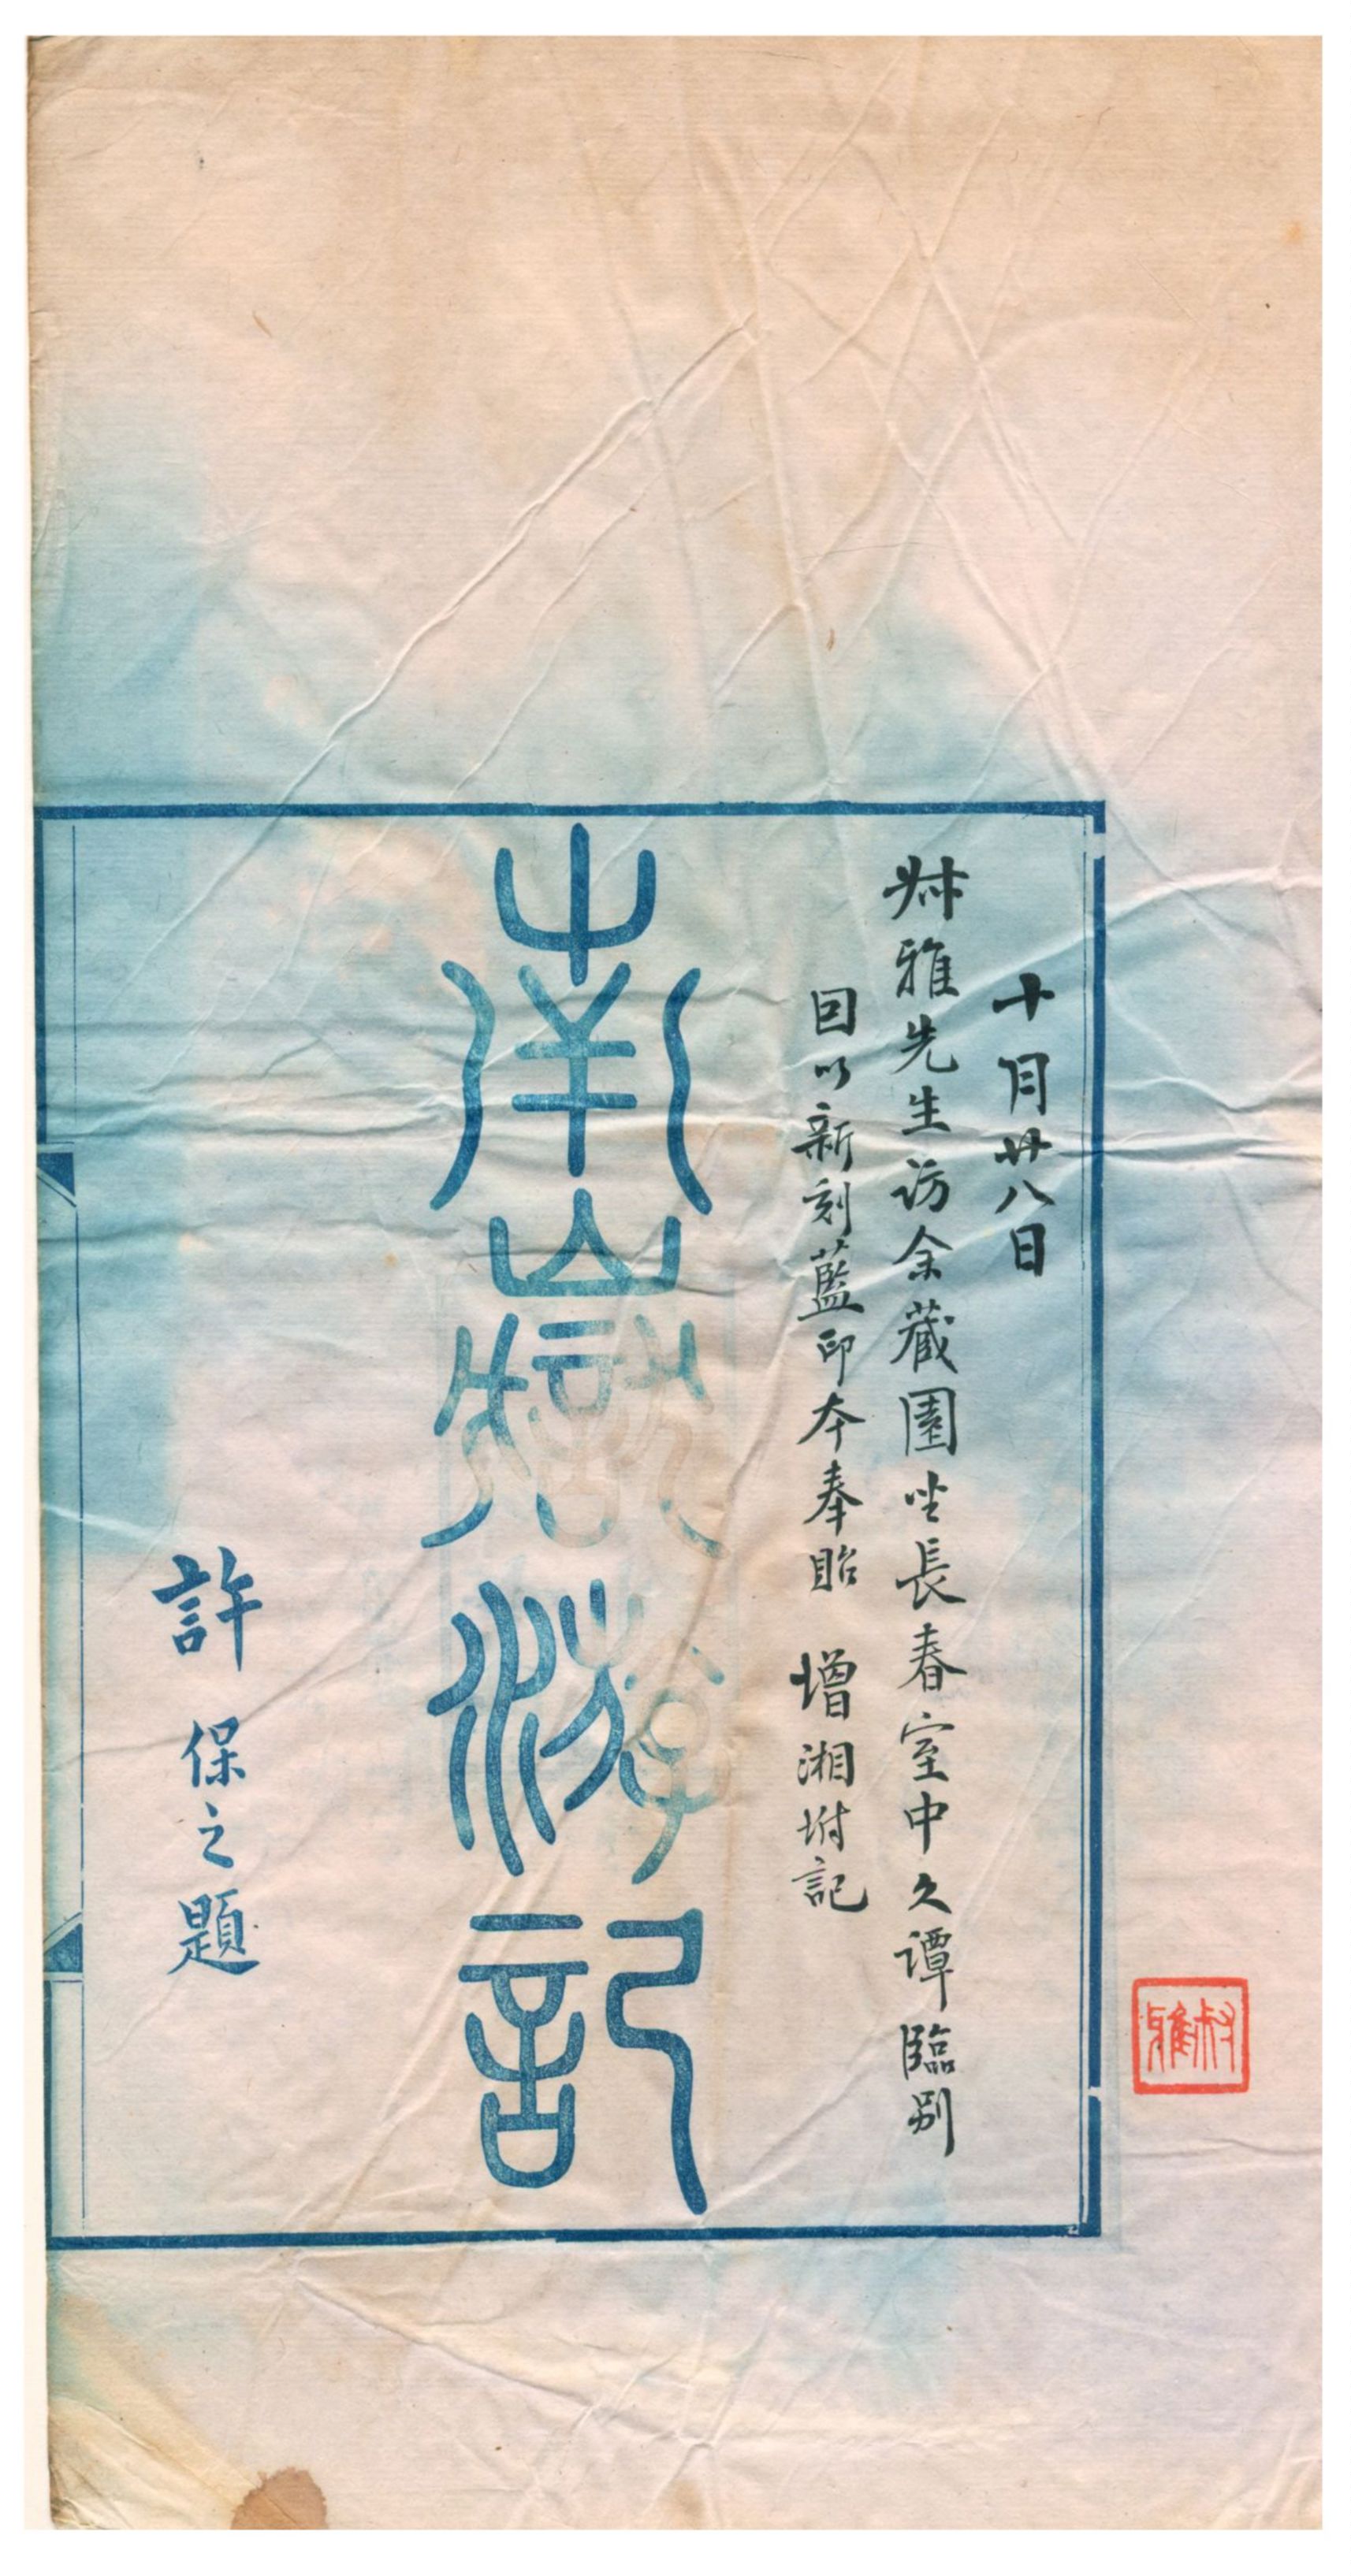 叔雅
十月廿八日
叔雅先生訪余藏園坐長春室中久譚臨别
因以新刻藍印本奉貽 增湘坿記
南嶽游記
許保之題